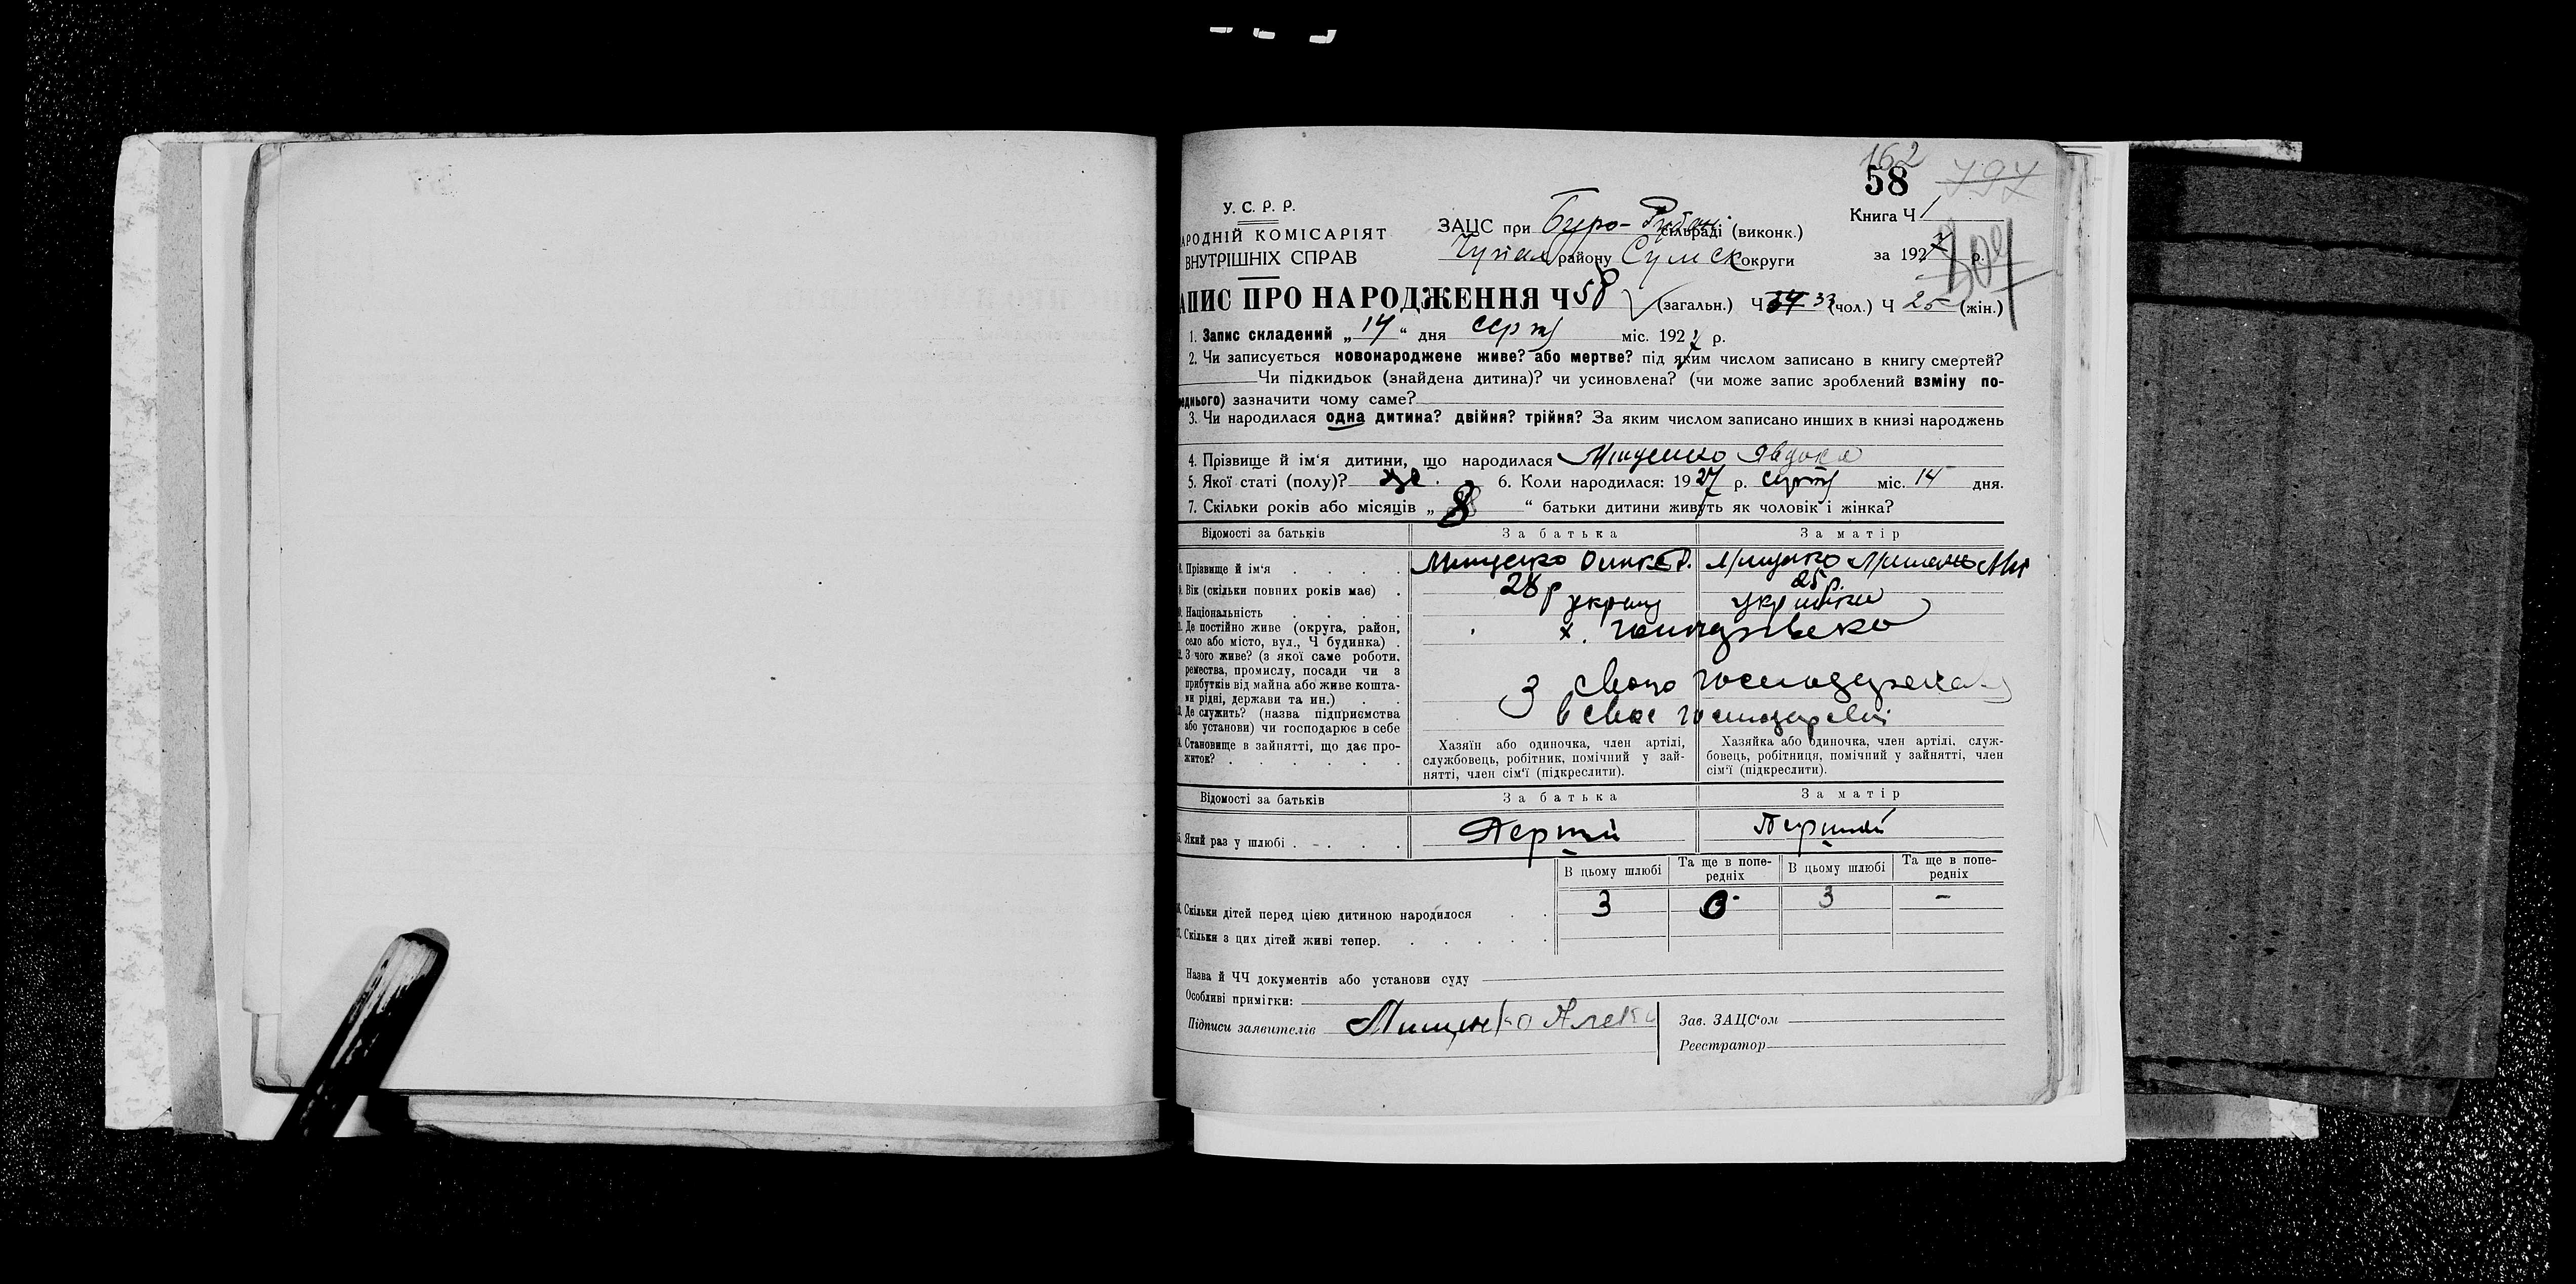 162
58 797
У. С. Р. Р.
АРОДНІЙ КОМІСАРІЯТ
ВНУТРІШНІХ СПРАВ
ЗАЦС при Буро- сільраді (виконк.)
району Сумск округи
Книга Ч 1
за 1927 р.
АПИС ПРО НАРОДЖЕННЯ Ч 58 (загальн.) Ч 34 33 (чол.) Ч 25 (жін.)
1. Запис складений „14“ дня серп міс. 1927 р.
2. Чи записується новонароджене живе? або мертве? під яким числом записано в книгу смертей?
Чи підкидьок (знайдена дитина)? чи усиновлена? (чи може запис зроблений взміну по-
еднього) зазначити чому саме?
3. Чи народилася одна дитина? двійня? трійня? За яким числом записано инших в книзі народжень
4. Прізвище й ім‘я дитини, що народилася Міщенко Явдоки
5. Якої статі (полу)? же. 6. Коли народилася: 1927 р. серп міс. 14 дня.
7. Скільки років або місяців „ 8 “ батьки дитини живуть як чоловік і жінка?
Відомості за батьків За батька За матір
8. Прізвище й ім‘я . . . . Мищенко Мищенко
9. Вік (скільки повних років має) . 28 р 25 р.
Національність . . . . украц украінка
Де постійно живе (округа, район,
село або місто, вул., Ч будинка) . х.
З чого живе? (з якої саме роботи,
ремества, промислу, посади чи з
прибутків від майна або живе кошта-
ми рідні, держави та ин.) . . З свого
Де служить? (назва підприємства
або установи) чи господарює в себе в свое господарстві
Становище в зайнятті, що дає про-
житок? . . . . . .
Хазяїн або одиночка, член артілі,
службовець, робітник, помічний у зай-
нятті, член сім‘ї (підкреслити).
Хазяйка або одиночка, член артілі, служ-
бовець, робітниця, помічний у зайнятті, член
сім‘ї (підкреслити).
Відомості за батьків За батька За матір
Який раз у шлюбі . . . . Перший Перший
В цьому шлюбі Та ще в попе-
редніх В цьому шлюбі Та ще в попе-
редніх
Скільки дітей перед цією дитиною народилося . . 3 0 3 -
Скільки з цих дітей живі тепер. . . . . .
Назва й ЧЧ документів або установи суду
Особливі примітки:
Підписи заявителів Мищенко Алекс
Зав. ЗАЦС‘ом
Реєстратор